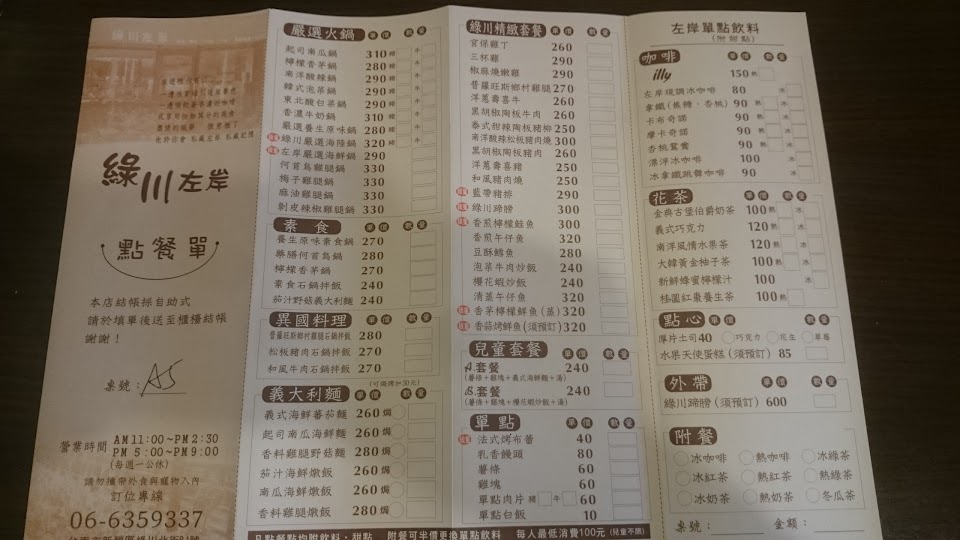 綠川左岸
點餐單
本店結帳採自助式
請於填單後送至櫃檯結帳
謝謝！
桌號：A5
營業時間 AM 11:00~PM 2:30
PM 5:00~PM 9:00
(每週一公休)
請勿攜帶外食與寵物入內
訂位專線
06-6359337
嚴選火鍋 單價 數量
起司南瓜鍋 310 豬 牛
檸檬香茅鍋 280 豬 牛
南洋酸辣鍋 290 豬 牛
韓式泡菜鍋 290 豬 牛
東北酸白菜鍋 290 豬 牛
香濃牛奶鍋 310 豬 牛
嚴選養生原味鍋 280 豬 牛
綠川嚴選海陸鍋 320 豬 牛
左岸嚴選海鮮鍋 290
何首烏雞腿鍋 330
梅子雞腿鍋 330
麻油雞腿鍋 330
剝皮辣椒雞腿鍋 330
素食 單價 數量
養生原味素食鍋 270
藥膳何首烏鍋 280
檸檬香茅鍋 270
素食石鍋拌飯 240
茄汁野菇義大利麵 240
異國料理 單價 數量
普羅旺斯鄉村雞腿石鍋拌飯 280
松板豬肉石鍋拌飯 270
和風牛肉石鍋拌飯 270
(可焗烤加30元)
義大利麵 單價 數量
義式海鮮蕃茄麵 260 焗
起司南瓜海鮮麵 280 焗
香料雞腿野菇麵 280 焗
茄汁海鮮燉飯 260 焗
南瓜海鮮燉飯 280 焗
香料雞腿燉飯 280 焗
綠川精緻套餐 單價 數量
宮保雞丁 260
三杯雞 290
椒麻燒嫩雞 290
普羅旺斯鄉村雞腿 270
洋蔥壽喜牛 260
黑胡椒陶板牛肉 260
泰式甜辣陶板豬柳 250
南洋酸辣松板豬肉燒 300
黑胡椒陶板豬肉 260
洋蔥壽喜豬 250
和風豬肉燒 250
藍帶豬排 290
綠川蹄膀 300
香煎檸檬鮭魚 300
香煎午仔魚 320
豆酥鱈魚 280
泡菜牛肉炒飯 240
櫻花蝦炒飯 240
清蒸午仔魚 320
香茅檸檬鮮魚(須預訂)(蒸) 320
香蒜烤鮮魚(須預訂) 320
兒童套餐 單價 數量
A.套餐 240
(薯條+雞塊+義式海鮮麵+湯)
B.套餐 240
(薯條+雞塊+櫻花蝦炒飯+湯)
單點 單價 數量
法式烤布蕾 40
乳香饅頭 80
薯條 60
雞塊 60
單點肉片 豬 牛 60
單點白飯 10
凡點餐點均附飲料、甜點 附餐可半價更換單點飲料 每人最低消費100元 (兒童不限)
左岸單點飲料
(附甜點)
咖啡 單價 數量
illy 150 熱
左岸現調冰咖啡 80 冰
拿鐵(焦糖、杏桃) 90 熱 冰
卡布奇諾 90 熱 冰
摩卡奇諾 90 熱 冰
杏桃鴛鴦 90 熱 冰
漂浮冰咖啡 100 冰
冰拿鐵跳舞咖啡 90 冰
花茶 單價 數量
金典古堡伯爵奶茶 100 熱 冰
義式巧克力 120 熱 冰
南洋風情水果茶 120 熱 冰
大韓黃金柚子茶 100 熱 冰
新鮮蜂蜜檸檬汁 100 冰
桂圓紅棗養生茶 100 熱
點心 單價 數量
厚片土司 40 巧克力 花生 草莓
水果天使蛋糕(須預訂) 85
外帶 單價 數量
綠川蹄膀(須預訂) 600
附餐
冰咖啡 熱咖啡 冰綠茶
冰紅茶 熱紅茶 熱綠茶
冰奶茶 熱奶茶 冬瓜茶
桌號： 金額：